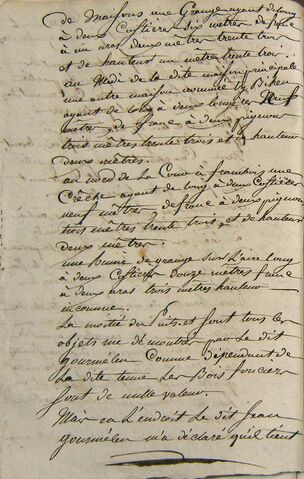 de maisons une Grange ayant de long
à deux Costières dix mètres de franc
à un aras deux mètres trente trois
et de hauteur un mètre trente trois.
au Midi de la dite maison principale
une autre maison nommée ty Bihen
ayant de long à deux longères Neuf
mètres, de franc à deux pignons
trois mètres trente trois et de hauteur
deux mètres.
au nord de la Cour à franbois une
Crêche ayant de long à deux Costières
neuf mètres de franc à deux pignons
trois mètres trente trois, et de hauteur
Deux mètres.
une Ruine de grange sur L'aire long
à deux Costières douze mètres franc
à deux aras trois mètres hauteur
inconnue.
La moitié du Puits et sont tous les
objets me démontrés par Le dit
gourmélen Comme dépendant de
La dite tenue Les Bois fonciers
sont de nulle valeur.
Mais en L'endroit Le dit jean
gourmélen m'a déclaré qu'il tient